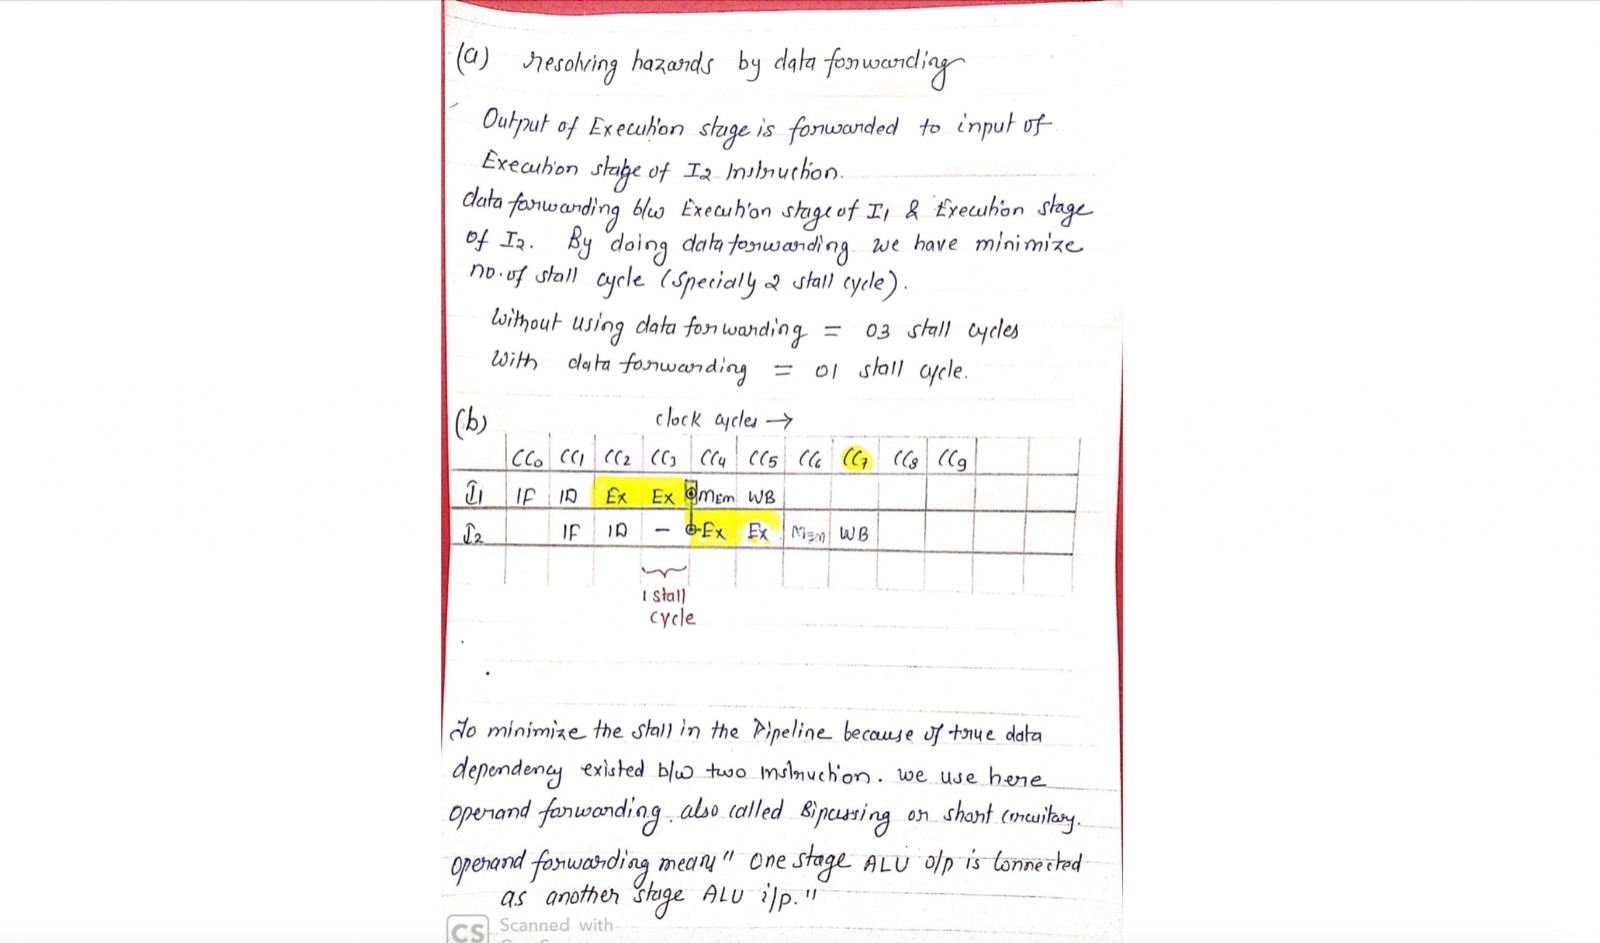 (a) resolving hazards by data forwarding
Output of Execution stage is forwarded to input of
Execution stage of I2 Instruction.
data forwarding b/w Execution stage of I1 & Execution stage
of I2. By doing data forwarding we have minimize
no. of stall cycle (Specially 2 stall cycle).
Without using data forwarding = 03 stall cycles
With data forwarding = 01 stall cycle.
(b) clock cycles →
CC0 CC1 CC2 CC3 CC4 CC5 CC6 CC7 CC8 CC9
I1 IF ID Ex Ex MEM WB
I2 IF ID - Ex Ex MEM WB
1 stall
cycle
To minimize the stall in the Pipeline because of true data
dependency existed b/w two instruction. we use here
operand forwarding also called Bipassing or short circuitary.
operand forwarding means " one stage ALU o/p is connected
as another stage ALU i/p."
CS Scanned with